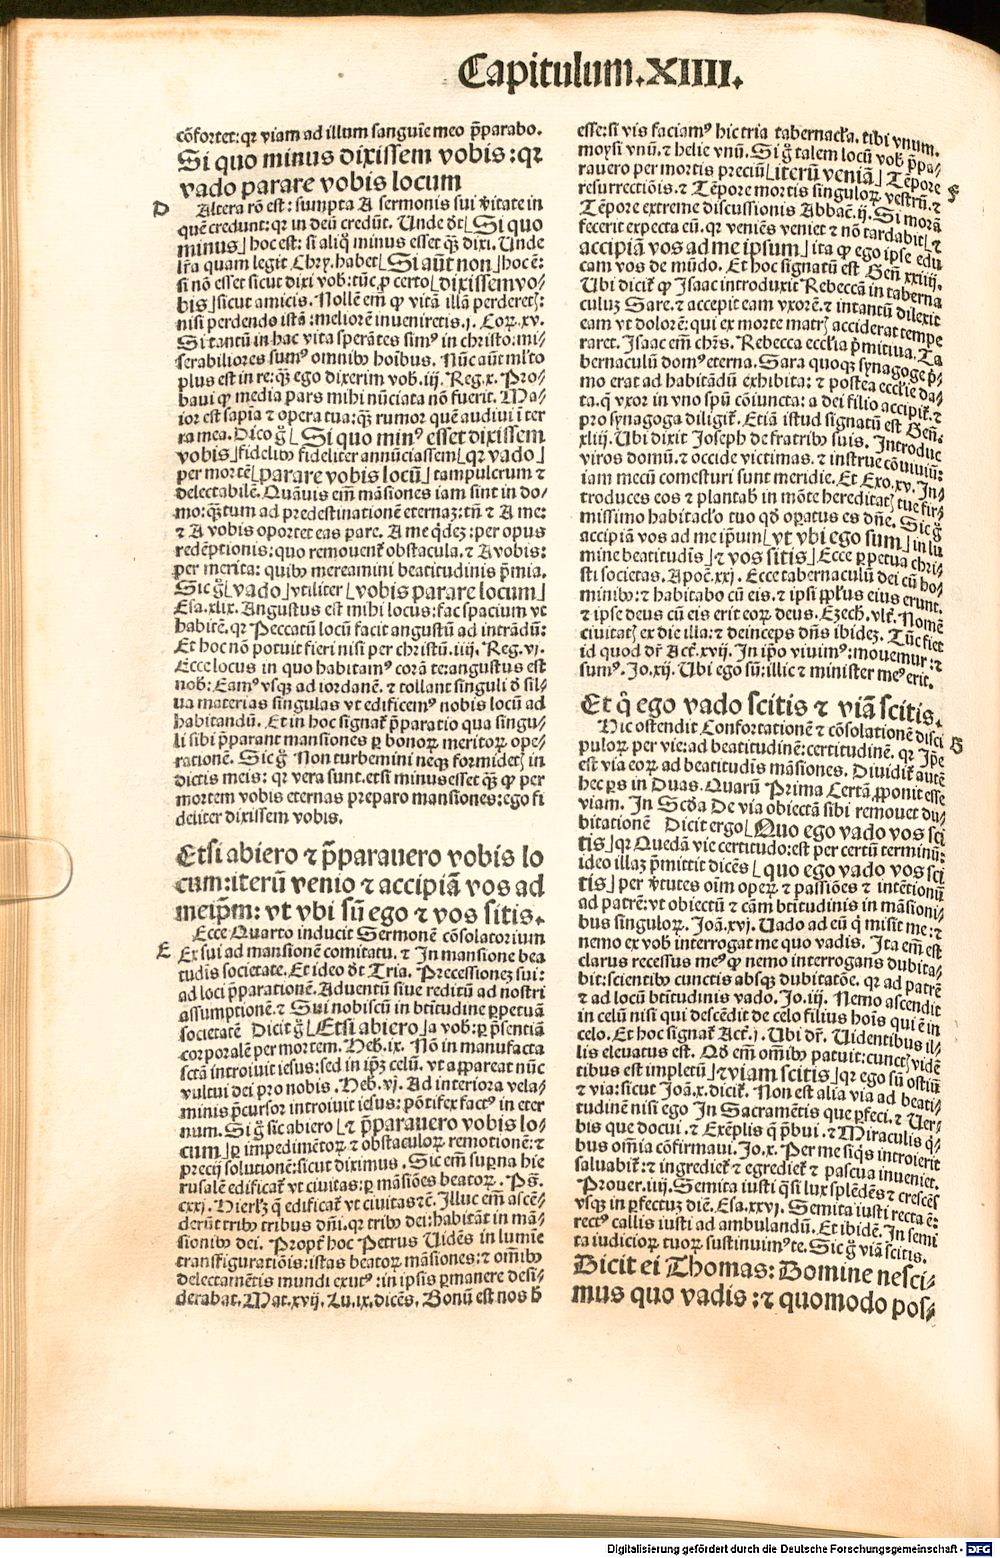 Capitulum.XIIII.
cõfortet: qꝛ viam ad illum sanguĩe meo p̃parabo.
Si quo minus dixissem vobis: qꝛ
vado parare vobis locum
D
Altera rõ est: sumpta A sermonis sui v̓itate in
quẽ credunt: qꝛ in deũ credũt. Unde d̓t [Si quo
minus] hoc est: si aliq̃ minus esset q̃ꝫ dixi. Unde
lr̃a quam legit Chrẏ. habet [Si aũt non] hoc ẽ:
si nõ esset sicut dixi vob̓: tũc ꝓ certo [dixissem vo⸗
bis] sicut amicis. Nollẽ em̃ ꝙ vitã illã perderetꝭ:
nisi perdendo istã: meliorẽ inueniretis. j. Coꝝ. xv.
Si tantũ in hac vita sperãtes sim⁹ in christo: mi⸗
serabiliores sum⁹ omnibꝰ hoĩbus. Nũc aũt ml̓to
plus est in re: q̃ꝫ ego dixerim vob̓. iij. Reg. x. Pro⸗
baui ꝙ media pars mihi nũciata nõ fuerit. Ma⸗
ior est sapĩa ⁊ opera tua: q̃ꝫ rumor quẽ audiui ĩ ter
ra mea. Dico g̃ [Si quo min⁹ esset dixissem
vobis] fidelibꝰ fideliter annũciassem [qꝛ vado]
per mortẽ [parare vobis locũ] tampulcrum ⁊
delectabilẽ. Quãuis em̃ mãsiones iam sint in do⸗
mo: q̃ꝫtum ad predestinationẽ eternaꝫ: tñ ⁊ A me:
⁊ A vobis oportet eas pare. A me q̓deꝫ: per opus
redẽptionis: quo remouent̃ obstacula. ⁊ A vobis:
per merita: quibꝰ mereamini beatitudinis p̃mia.
Sic g̃ [vado] vtiliter [vobis parare locum]
Esa. xlix. Angustus est mihi locus: fac spacium vt
habitẽ. qꝛ Peccatũ locũ facit angustũ ad intrãdũ:
Et hoc nõ potuit fieri nisi per christũ. iiij. Reg. vj.
Ecce locus in quo habitam⁹ corã te: angustus est
nob̓: Eam⁹ vsqꝫ ad iordanẽ. ⁊ tollant singuli d̓ sil⸗
ua materias singulas vt edificem⁹ nobis locũ ad
habitandũ. Et in hoc signat̃ p̃paratio qua singu⸗
li sibi p̃parant mansiones ꝑ bonoꝝ meritoꝝ ope⸗
rationẽ. Sic g̃ Non turbemini neqꝫ formidetꝭ in
dictis meis: qꝛ vera sunt. etsi minus esset q̃ꝫ ꝙ per
mortem vobis eternas preparo mansiones: ego fi
deliter dixissem vobis.
Etsi abiero ⁊ p̃parauero vobis lo
cum: iterũ venio ⁊ accipiã vos ad
meip̃m: vt vbi sũ ego ⁊ vos sitis.
E
Ecce Quarto inducit Sermonẽ cõsolatorium
Ex sui ad mansionẽ comitatu. ⁊ In mansione bea
tudĩs societate. Et ideo d̓t Tria. Precessioneꝫ sui:
ad loci p̃parationẽ. Aduentũ siue reditũ ad nostri
assumptionẽ. ⁊ Sui nobiscũ in btitudine ꝑpetuã
societatẽ Dicit g̃ [Etsi abiero] a vob̓: ꝑ p̃sentiã
corporalẽ per mortem. Heb̓. ix. Nõ in manufacta
sctã introiuit iesus: sed in ip̃ꝫ celũ. vt appareat nũc
vultui dei pro nobis. Heb̓. vj. Ad interiora vela⸗
minis p̃cursor introiuit iesus: põtifex fact⁹ in eter
num. Si g̃ sic abiero [⁊ p̃parauero vobis lo⸗
cum] ꝑ impedimẽtoꝝ ⁊ obstaculoꝝ remotionẽ: ⁊
precij solutionẽ: sicut diximus. Sic em̃ supna hie
rusalẽ edificat̃ vt ciuitas: ꝑ mãsiões beatoꝝ. Ps̃.
cxxj. Hierl̓ꝫ q̃ edificat̃ vt ciuitas ⁊c̃. Illuc em̃ ascẽ⸗
derũt tribꝰ tribus dñi. qꝛ tribꝰ dei: habitãt in mã⸗
sionibꝰ dei. Propt̓ hoc Petrus Uidẽs in lumĩe
transfiguratiõis: istas beatoꝝ mãsiones: ⁊ om̃ibꝰ
delectamẽtis mundi exut⁹: in ipsis ꝑmanere desi⸗
derabat. Mat. xvij. Lu. ix. dicẽs. Bonũ est nos h̓
esse: si vis faciam⁹ hic tria tabernacl̓a. tibi vnum.
moysi vnũ. ⁊ helie vnũ. Si g̃ talem locũ vob̓ p̃pa⸗
rauero per mortis preciũ [iterũ veniã] Tẽpore
F
resurrectiõis. ⁊ Tẽpore mortis singuloꝝ vestrũ. ⁊
Tẽpore extreme discussionis Abbac̃. ij. Si morã
fecerit expecta eũ. qꝛ veniẽs veniet ⁊ nõ tardabit [⁊
accipiã vos ad me ipsum] ita ꝙ ego ipse edu
cam vos de mũdo. Et hoc signatũ est Geñ. xxiiij.
Ubi dicit̃ ꝙ Isaac introduxit Rebeccã in taberna
culuꝫ Sare. ⁊ accepit eam vxorẽ. ⁊ intantũ dilexit
eam vt dolorẽ: qui ex morte matrꝭ acciderat tempe
raret. Isaac em̃ chr̃s. Rebecca eccl̓ia p̃mitiua. Ta
bernaculũ dom⁹ eterna. Sara quoqꝫ synagoge p̃⸗
mo erat ad habitãdũ exhibita: ⁊ postea eccl̓ie da⸗
ta. q̃ vxor in vno spũ cõiuncta: a dei filio accipit̃. ⁊
pro synagoga diligit̃. Etiã istud signatũ est Geñ.
xliij. Ubi dixit Joseph de fratribꝰ suis. Introduc
viros domũ. ⁊ occide victimas. ⁊ instrue cõuiuiũ:
iam mecũ comesturi sunt meridie. Et Exo. xv. In⸗
troduces eos ⁊ plantab̓ in mõte hereditatꝭ tue fir⸗
missimo habitacl̓o tuo qd̓ oꝑatus es dñe. Sic g̃
accipiã vos ad me ip̃um [vt vbi ego sum] in lu
mine beatitudis̃ [⁊ vos sitis] Ecce ꝑpetua chri⸗
sti societas. Apoc̃. xxj. Ecce tabernaculũ dei cũ ho⸗
minibꝰ: ⁊ habitabo cũ eis. ⁊ ipsi pp̃lus eius erunt.
⁊ ipse deus cũ eis erit eoꝝ deus. Ezech̓. vlt̃. Nomẽ
ciuitatꝭ ex die illa: ⁊ deinceps dñs ibideꝫ. Tũc fiet
id quod dr̃ Act̃. xvij. In ip̃o viuim⁹: mouemur: ⁊
sum⁹. Jo. xij. Ubi ego sũ: illic ⁊ minister me⁹ erit.
Et q̊ ego vado scitis ⁊ viã scitis.
G
Hic ostendit Confortationẽ ⁊ cõsolationẽ disci
puloꝝ per vie: ad beatitudinẽ: certitudinẽ. qꝛ Ip̃e
est via eoꝝ ad beatitudis̃ mãsiones. Diuidit̃ autẽ
hec ꝑs in Duas. Quarũ Prima Certã ꝓponit esse
viam. In Scd̓a De via obiectã sibi remouet du⸗
bitationẽ Dicit ergo [Quo ego vado vos sci
tis] qꝛ Quedã vie certitudo: est per certũ terminũ:
ideo illaꝫ p̃mittit dicẽs [quo ego vado vos sci
tis] per v̓tutes oĩm operꝝ ⁊ passiões ⁊ intẽtionũ
ad patrẽ: vt obiectũ ⁊ cãm btitudinis in mãsioni⸗
bus singuloꝝ. Joã. xvj. Uado ad eũ q̓ misit me: ⁊
nemo ex vob̓ interrogat me quo vadis. Ita em̃ est
clarus recessus me⁹ ꝙ nemo interrogans dubita⸗
bit: scientibꝰ cunctis absqꝫ dubitatõe. qꝛ ad patrẽ
⁊ ad locũ btitudinis vado. Jo. iij. Nemo ascendit
in celũ nisi qui descẽdit de celo filius hoĩs qui ẽ in
celo. Et hoc signat̃ Act̃. j. Ubi dr̃. Uidentibus il⸗
lis eleuatus est. Qd̓ em̃ om̃ibꝰ patuit: cunctꝭ vidẽ
tibus est impletũ [⁊ viam scitis] qꝛ ego sũ ostiũ
⁊ via: sicut Joã. x. dicit̃. Non est alia via ad beati⸗
tudinẽ nisi ego In Sacramẽtis que ꝑfeci. ⁊ Uer⸗
bis que docui. ⁊ Exẽplis q̃ p̃bui. ⁊ Miraculis q̓⸗
bus om̃ia cõfirmaui. Jo. x. Per me siq̓s introierit
saluabit̃: ⁊ ingrediet̃ ⁊ egrediet̃ ⁊ pascua inueniet.
Prouer. iiij. Semita iusti q̃si lux splẽdẽs ⁊ crescẽs
vsqꝫ in ꝑfectuꝫ diẽ. Esa. xxvj. Semita iusti recta ẽ:
rect⁹ callis iusti ad ambulandũ. Et ibidẽ. In semi
ta iudicioꝝ tuoꝝ sustinuim⁹ te. Sic g̃ viã scitis.
Dicit ei Thomas: Domine nesci⸗
mus quo vadis: ⁊ quomodo pos⸗
Digitalisierung gefördert durch die Deutsche Forschungsgemeinschaft - DFG